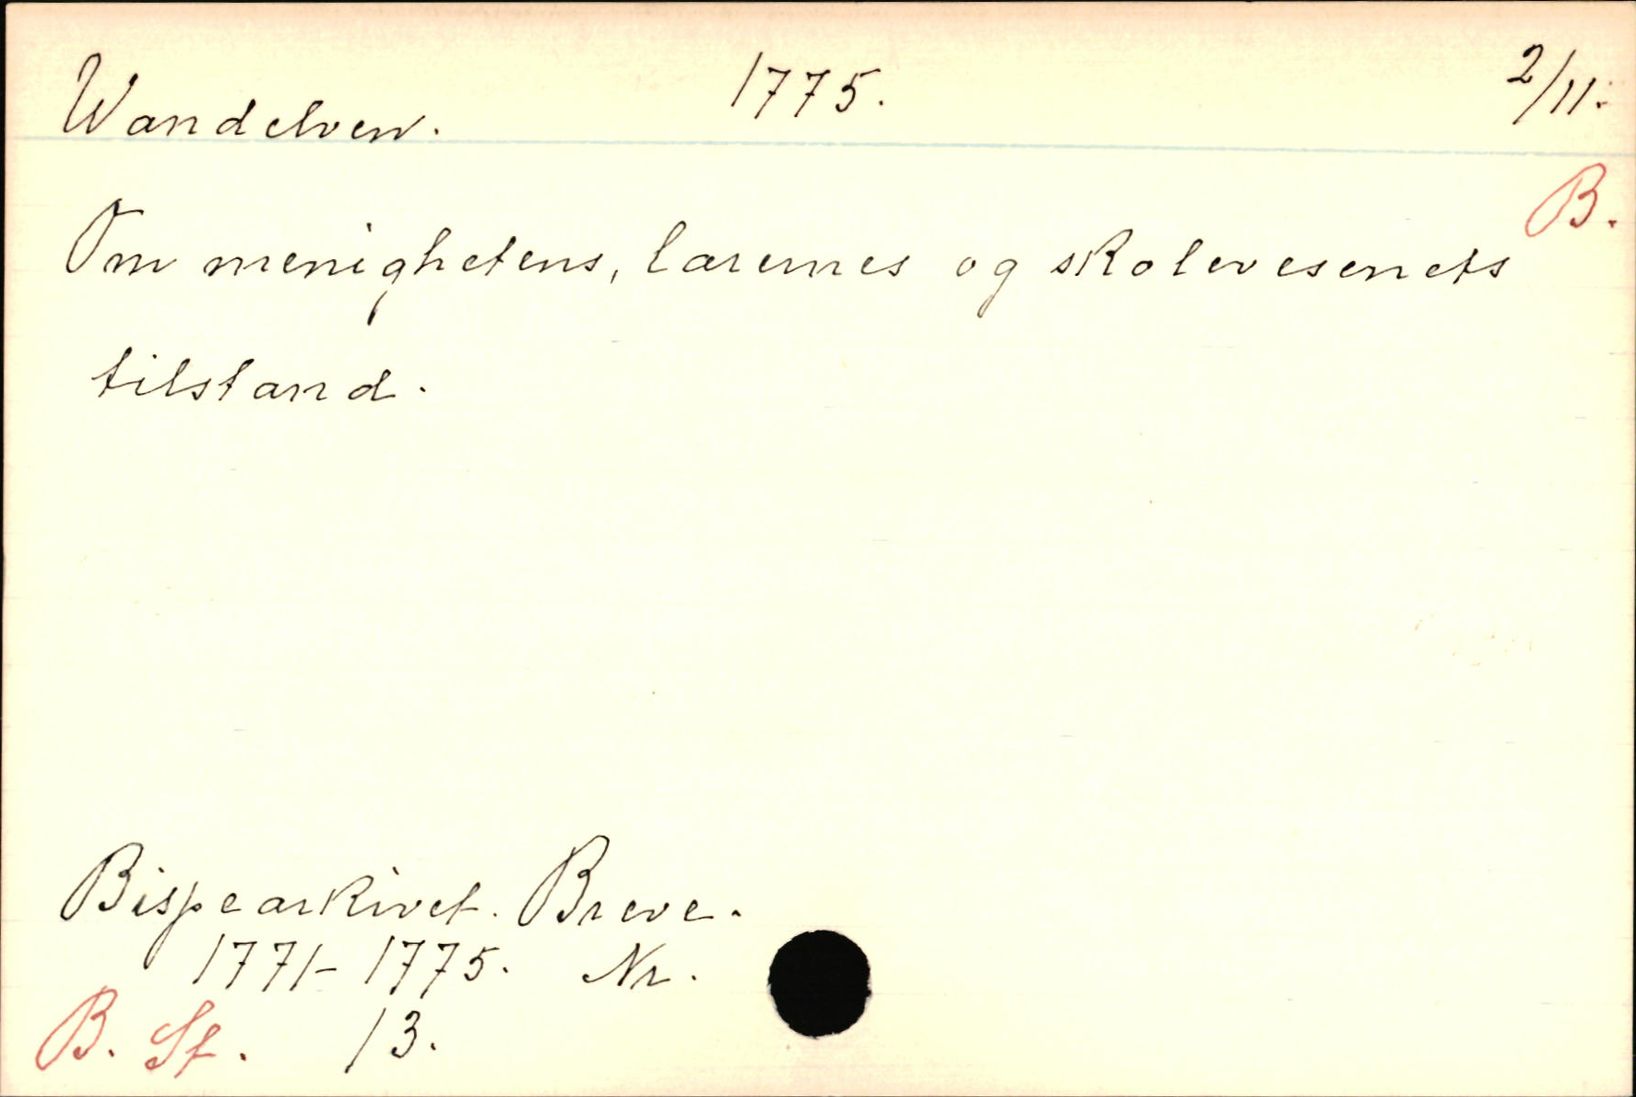 Wandelven. 1775. 2/11.
B.
Om menighetens, lærernes og skolevesenets
tilstand.
Bispearkivet. Breve.
1771-1775. Nr.
B. St. 13.